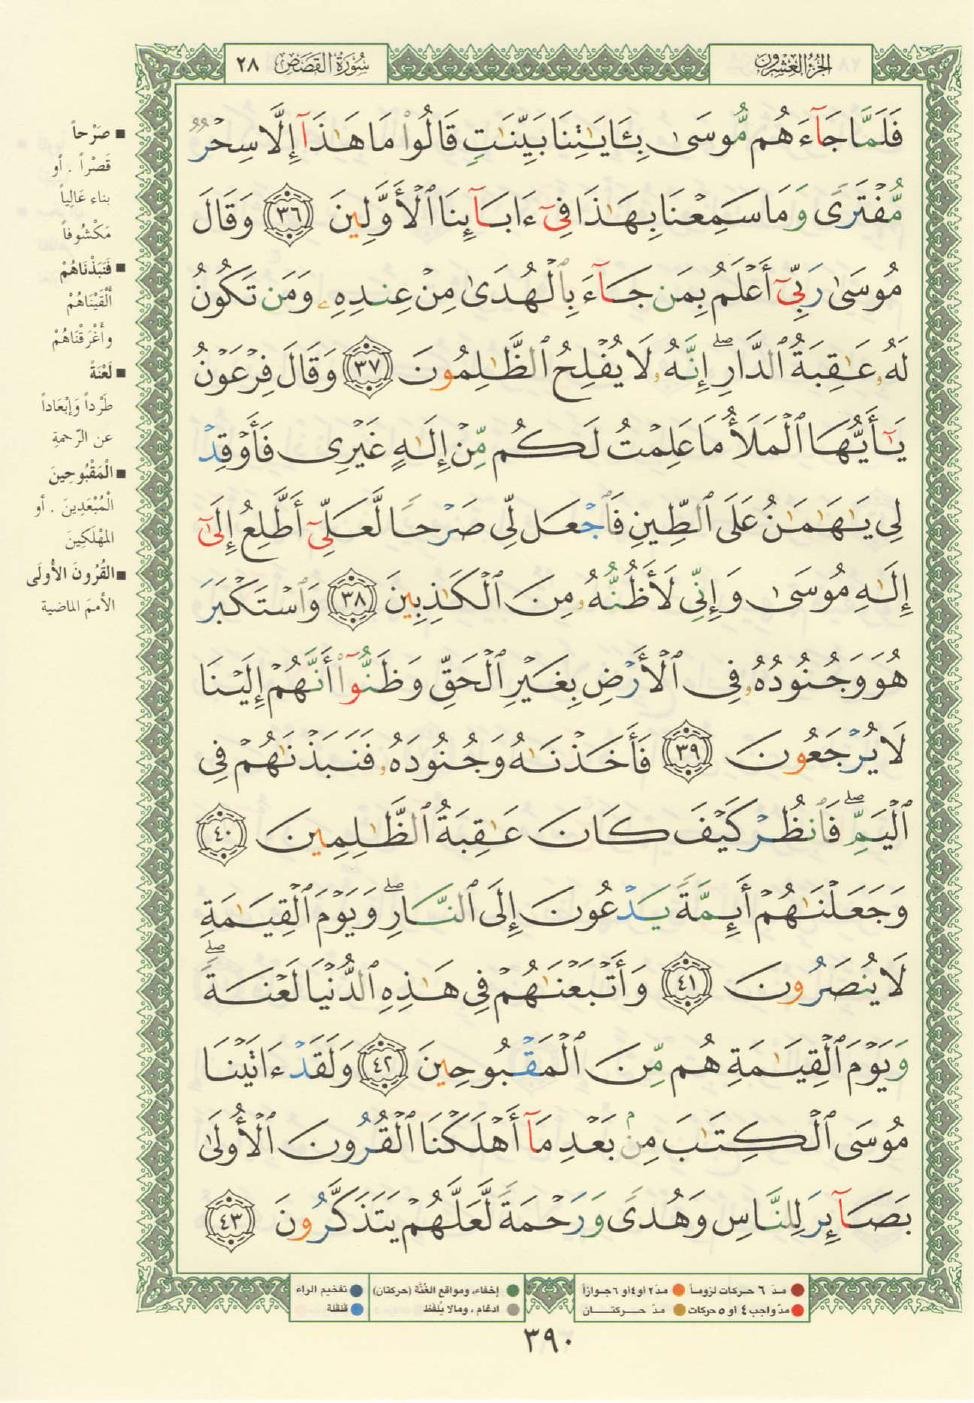 سُورَةُ القَصَصِ ٢٨
الجُزْءُ العِشْرُونَ
فَلَمَّا جَآءَهُم مُّوسَىٰ بِـَٔايَـٰتِنَا بَيِّنَـٰتٍ قَالُوا۟ مَا هَـٰذَآ إِلَّا سِحْرٌ
مُّفْتَرًى وَمَا سَمِعْنَا بِهَـٰذَا فِىٓ ءَابَآئِنَا ٱلْأَوَّلِينَ ﴿٣٦﴾ وَقَالَ
مُوسَىٰ رَبِّىٓ أَعْلَمُ بِمَن جَآءَ بِٱلْهُدَىٰ مِنْ عِندِهِۦ وَمَن تَكُونُ
لَهُۥ عَـٰقِبَةُ ٱلدَّارِ ۖ إِنَّهُۥ لَا يُفْلِحُ ٱلظَّـٰلِمُونَ ﴿٣٧﴾ وَقَالَ فِرْعَوْنُ
يَـٰٓأَيُّهَا ٱلْمَلَأُ مَا عَلِمْتُ لَكُم مِّنْ إِلَـٰهٍ غَيْرِى فَأَوْقِدْ
لِى يَـٰهَـٰمَـٰنُ عَلَى ٱلطِّينِ فَٱجْعَل لِّى صَرْحًا لَّعَلِّىٓ أَطَّلِعُ إِلَىٰٓ
إِلَـٰهِ مُوسَىٰ وَإِنِّى لَأَظُنُّهُۥ مِنَ ٱلْكَـٰذِبِينَ ﴿٣٨﴾ وَٱسْتَكْبَرَ
هُوَ وَجُنُودُهُۥ فِى ٱلْأَرْضِ بِغَيْرِ ٱلْحَقِّ وَظَنُّوٓا۟ أَنَّهُمْ إِلَيْنَا
لَا يُرْجَعُونَ ﴿٣٩﴾ فَأَخَذْنَـٰهُ وَجُنُودَهُۥ فَنَبَذْنَـٰهُمْ فِى
ٱلْيَمِّ ۖ فَٱنظُرْ كَيْفَ كَانَ عَـٰقِبَةُ ٱلظَّـٰلِمِينَ ﴿٤٠﴾
وَجَعَلْنَـٰهُمْ أَئِمَّةً يَدْعُونَ إِلَى ٱلنَّارِ ۖ وَيَوْمَ ٱلْقِيَـٰمَةِ
لَا يُنصَرُونَ ﴿٤١﴾ وَأَتْبَعْنَـٰهُمْ فِى هَـٰذِهِ ٱلدُّنْيَا لَعْنَةً ۖ
وَيَوْمَ ٱلْقِيَـٰمَةِ هُم مِّنَ ٱلْمَقْبُوحِينَ ﴿٤٢﴾ وَلَقَدْ ءَاتَيْنَا
مُوسَى ٱلْكِتَـٰبَ مِنۢ بَعْدِ مَآ أَهْلَكْنَا ٱلْقُرُونَ ٱلْأُولَىٰ
بَصَآئِرَ لِلنَّاسِ وَهُدًى وَرَحْمَةً لَّعَلَّهُمْ يَتَذَكَّرُونَ ﴿٤٣﴾
■ صَرْحاً
قَصْراً . أو
بناء عَالِياً
مَكْشُوفاً
■ فَنَبَذْنَاهُمْ
أَلْقَيْنَاهُمْ
وأَغْرَقْنَاهُمْ
■ لَعْنَةً
طَرْداً وَإبْعَاداً
عن الرّحمةِ
■ الْمَقْبُوحِينَ
الْمُبْعَدِينَ . أو
المُهْلَكِينَ
■ القُرُونَ الأُولَى
الأممَ الماضيةَ
مدّ ٦ حركات لزوماً ● مدّ ٢ او ٤ او ٦ جوازاً
مدّ واجب ٤ او ٥ حركات ● مدّ حركتان
إخفاء، ومواقع الغُنَّة (حركتان) ● تفخيم الراء
ادغام ، ومالا يُلفَظ ● قلقلة
٣٩٠